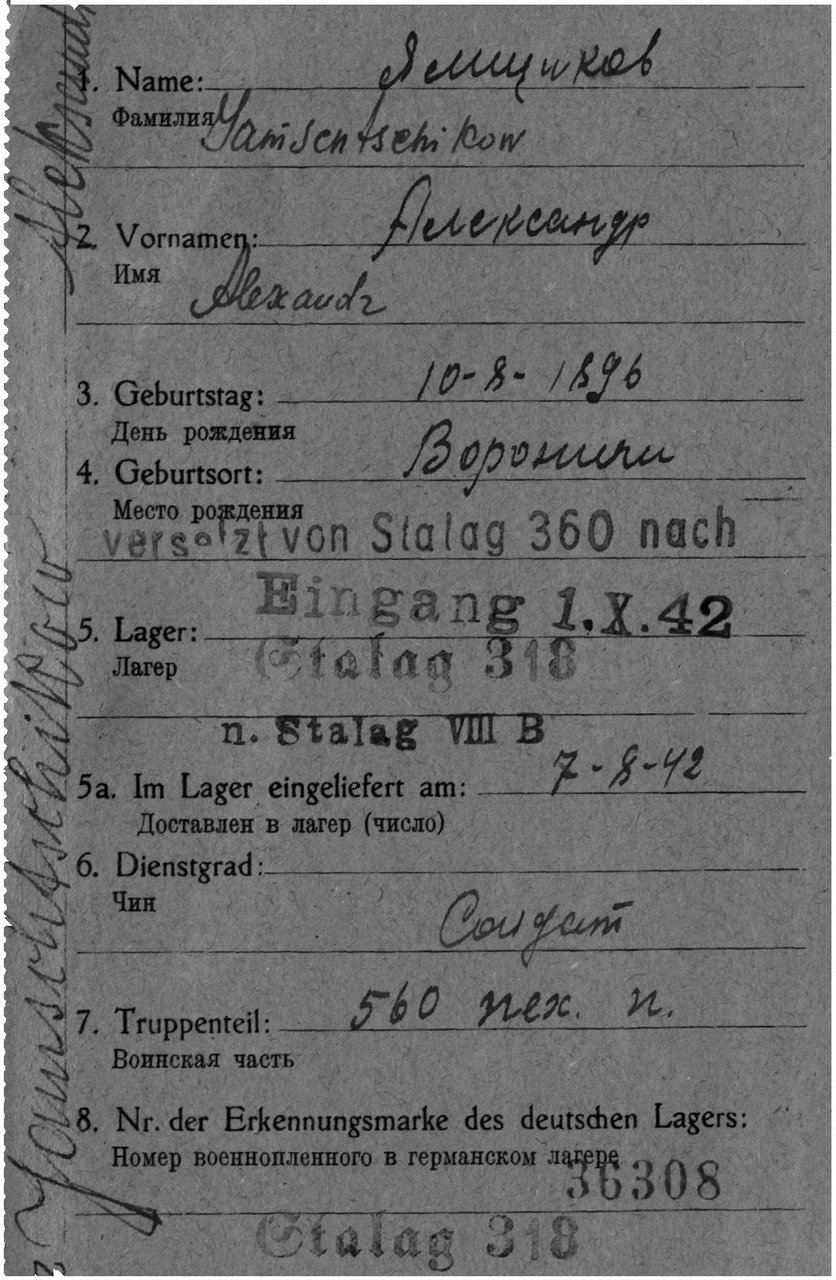 1. Name: Ямщиков
Фамилия Jamschtschikow
2. Vornamen: Александр
Имя Alexandr
3. Geburtstag: 10-8-1896
День рождения
4. Geburtsort: Вороничи
Место рождения
versetzt von Stalag 360 nach
Eingang 1.X.42
5. Lager:
Лагер Stalag 318
n. Stalag VIII B
5a. Im Lager eingeliefert am: 7-8-42
Доставлен в лагер (число)
6. Dienstgrad:
Чин
Солдат
7. Truppenteil: 560 пех. п.
Воинская часть
8. Nr. der Erkennungsmarke des deutschen Lagers:
Номер военнопленного в германском лагере
36308
Stalag 318
Jamschtschikow Alexandr